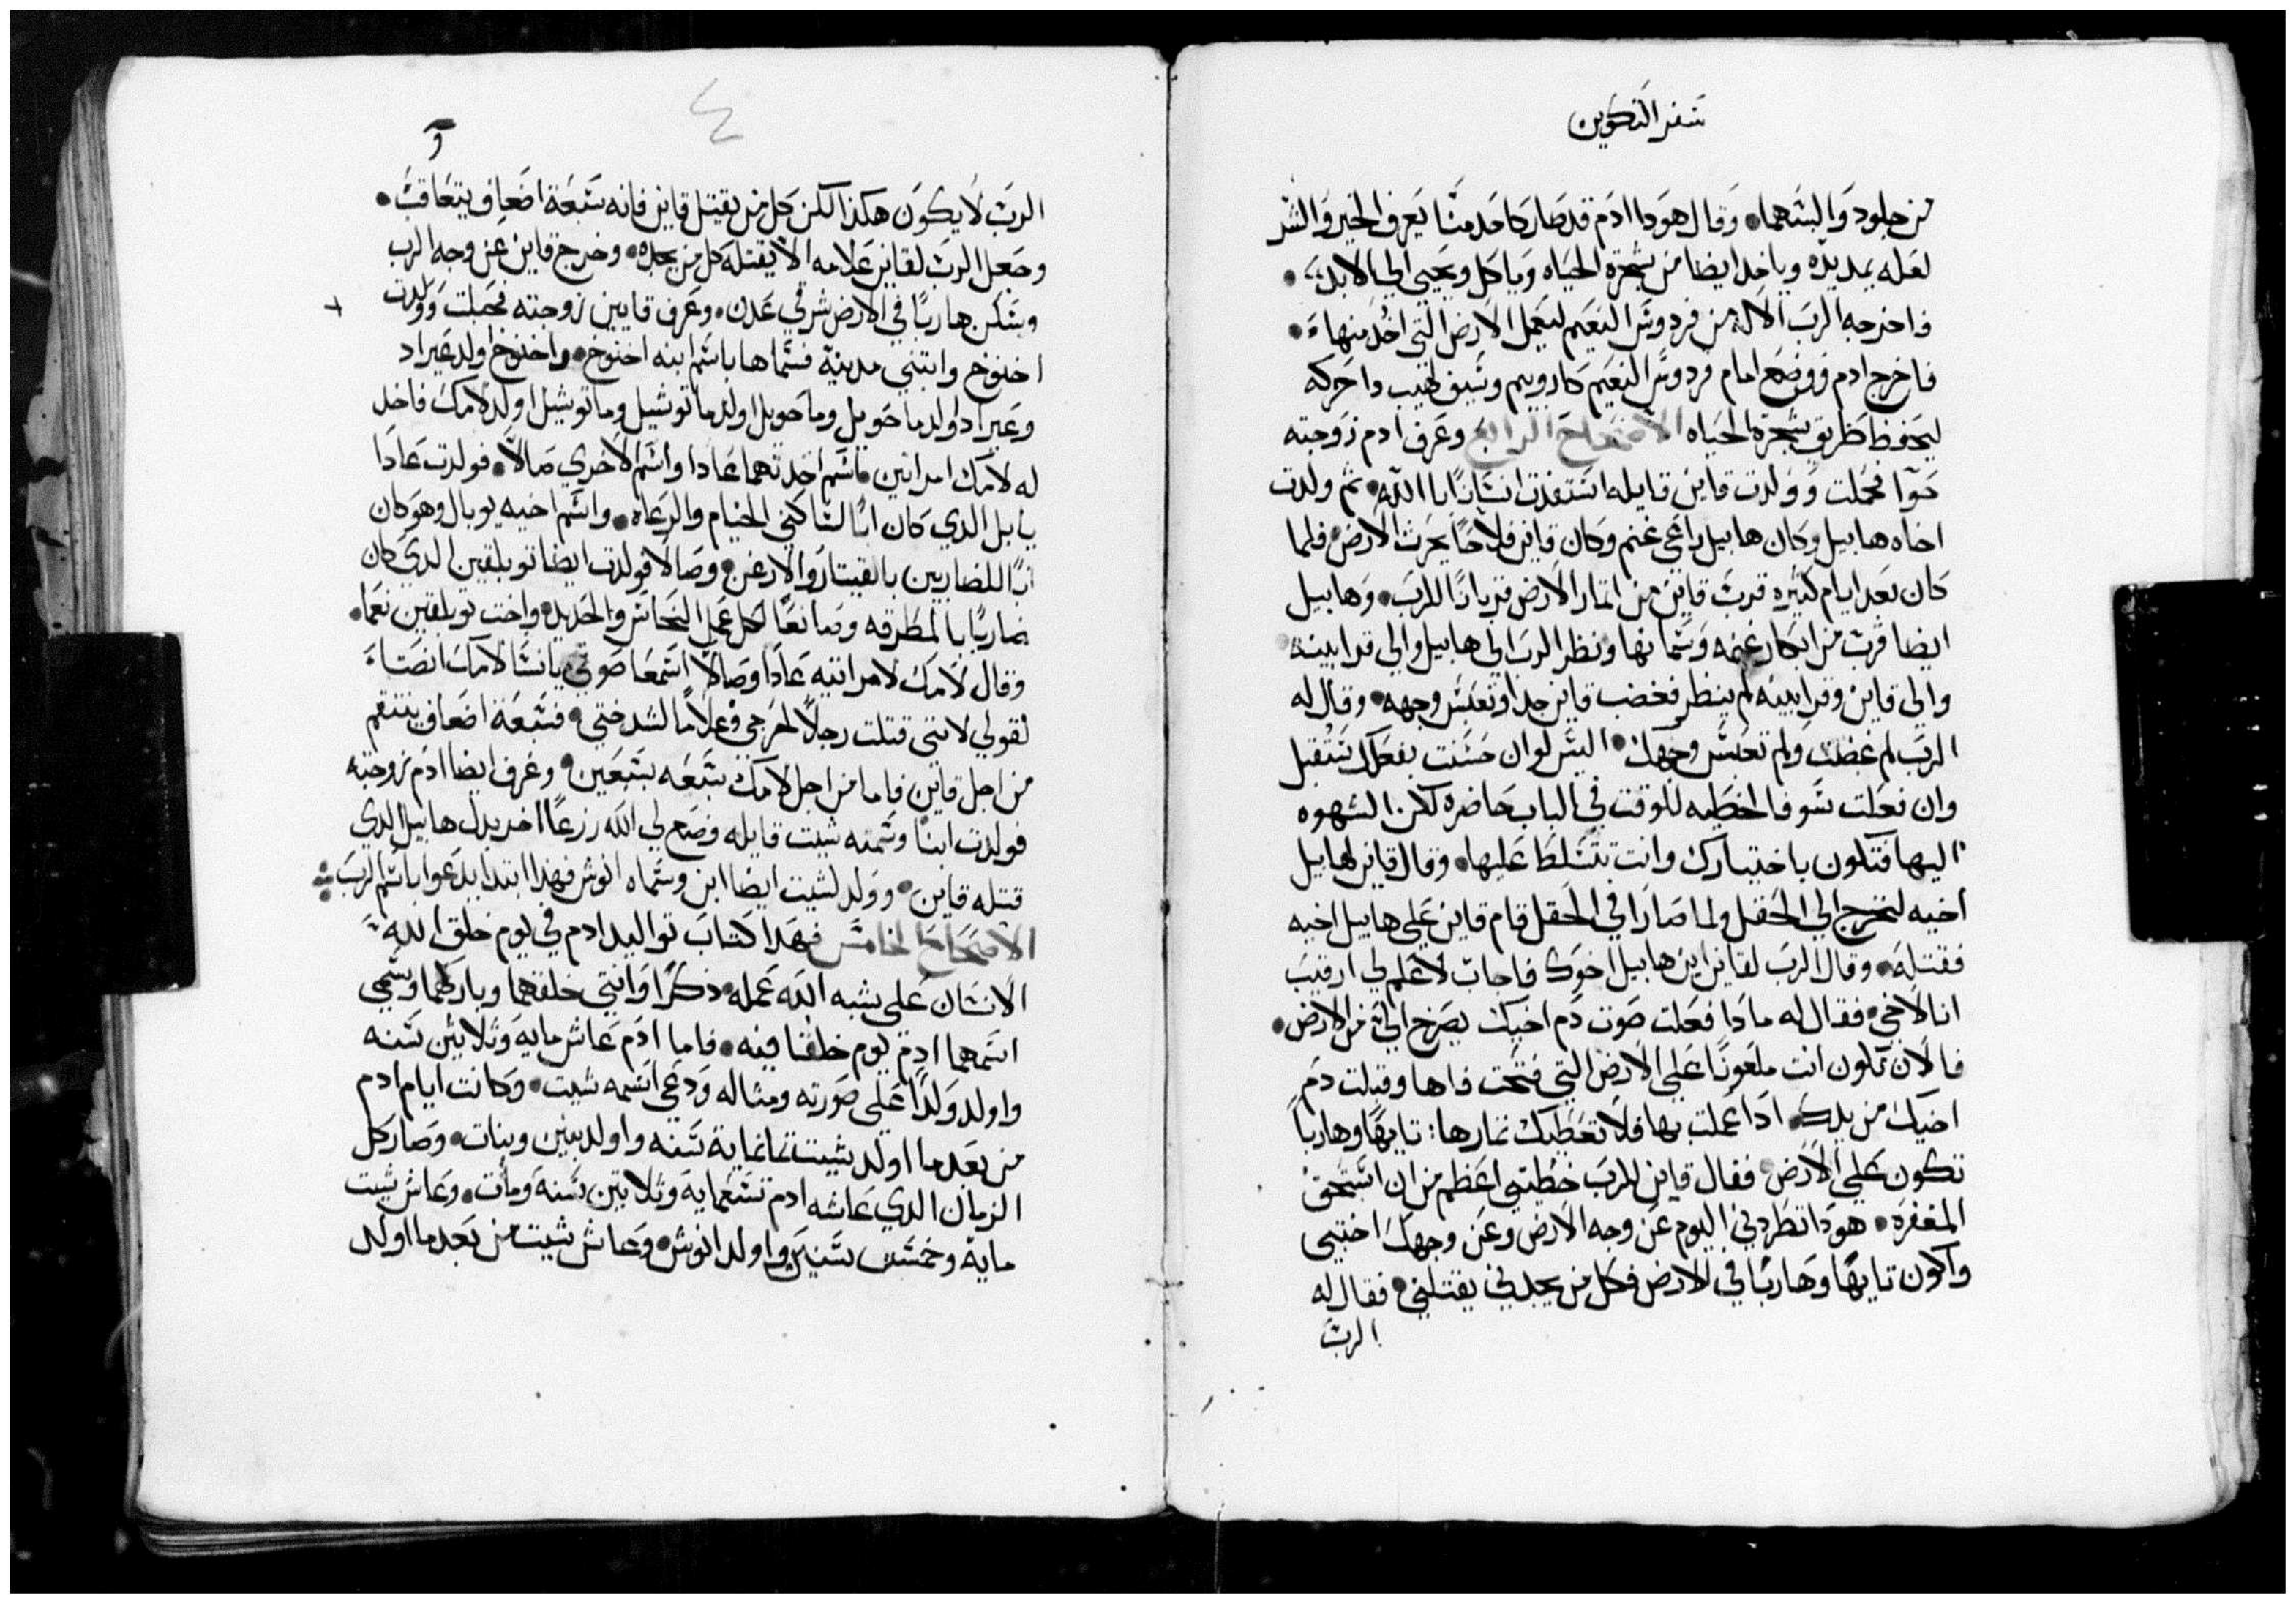 سفر التكوين
من جلود والبسهما وقال هودا ادم قد صار كاحد منا يعرف الخير والشر
لعله يمد يده وياخد ايضا من شجرة الحياه وياكل ويحيى الي الابد
فاخرجه الرب الاله من فردوس النعيم ليعمل الارض التي اخد منها
فاخرج ادم ووضع امام فردوس النعيم كارويم وسيف لهيب داحركه
ليحفظ طريق شجرة الحياه الاصحاح الرابع وعرف ادم زوجته
حوا فحملت وولدت قاين قايله استفدت انسانًا بالله ثم ولدت
اخاه هابيل وكان هابيل راعي غنم وكان قاين فلاحًا يحرث الارض فلما
كان بعد ايام كثيره قرب قاين من اثمار الارض قربانًا للرب وهابيل
ايضا قرب من ابكار غنمه وسمانها ونظر الرب الي هابيل والي قرابينه
والي قاين وقرابينه لم ينظر فغضب قاين جدا وتعبس وجهه وقال له
الرب لم غضبت ولم تعبس وجهك اليس لو ان حسنت بفعلك ستقبل
وان فعلت سو فالخطيه للوقت في الباب حاضره لكن الشهوه
اليها فتكون باختيارك وانت تتسلط عليها وقال قاين لهابيل
اخيه لنخرج الي الحقل ولما صارا في الحقل قام قاين علي هابيل اخيه
فقتله وقال الرب لقاين اين هابيل اخوك فاجاب لا علم لي ارقيب
انا لاخي فقال له مادا فعلت صوت دم اخيك يصرخ الي من الارض
فالان تكون انت ملعونًا علي الارض التي فتحت فاها وقبلت دم
اخيك من يدك ادا عملت بها فلا تعطيك ثمارها تايهًا وهاربا
تكون علي الارض فقال قاين للرب خطيتي اعظم من ان استحق
المغفره هودا تطردني اليوم عن وجه الارض وعن وجهك اختبي
واكون تايهًا وهاربًا في الارض فكل من يجدني يقتلني فقال له
الرب
٤
و
الرب لا يكون هكذا لكن كل من يقتل قاين فانه سبعة اضعاف يتعاقب
وجعل الرب لقاين علامه الا يقتله كل من يجده وخرج قاين عن وجه الرب
وسكن هاربًا في الارض شرقي عدن وعرف قايين زوجته فحملت وولدت
اخنوخ وابتني مدينة فسماها باسم ابنه اخنوخ واخنوخ اولد عيراد
وعيراد اولد ماحويل وماحويل اولد ماتوشيل وماتوشيل اولد لامك فاخد
له لامك امراتين فاسم احدتهما عادا واسم الاخري صالا فولدت عادا
يابل الدي كان ابًا لساكني الخيام والرعاه واسم اخيه يوبال وهو كان
ابًا للضاربين بالقيتار والارغن وصالا فولدت ايضا توبلقين الدي كان
ضاربًا بالمطرقه وصانعًا لكل عمل النحاس والحديد واخت توبلقين نعما
وقال لامك لامراتيه عادا وصالا اسمعا صوتي يا نسا لامك انصتا
لقولي لانني قتلت رجلًا لجرحي وغلامًا لشدختي فسبعة اضعاف ينتقم
من اجل قاين فاما من اجل لامك سبعه بسبعين وعرف ايضا ادم زوجته
فولدت ابنا وسمته شيت قايله وضع لي الله زرعًا اخر بدل هابيل الدي
قتله قاين وولد لشيت ايضا ابن وسماه انوش فهدا ابتدا يدعوا باسم الرب
الاصحاح الخامس فهدا كتاب تواليد ادم في يوم خلق الله
الانسان علي شبه الله عمله ذكرًا وانثي خلقهما وباركهما وسمي
اسمهما ادم يوم خلقا فيه فاما ادم عاش مايه وثلاثين سنه
واولد ولدًا علي صورته ومثاله ودعي اسمه شيت وكانت ايام ادم
من بعد ما اولد شيت ثمانماية سنه واولد بنين وبنات وصار كل
الزمان الدي عاشه ادم تسعماية وثلاثين سنة ومات وعاش شيت
ماية وخمس سنين واولد انوش وعاش شيت من بعد ما اولد